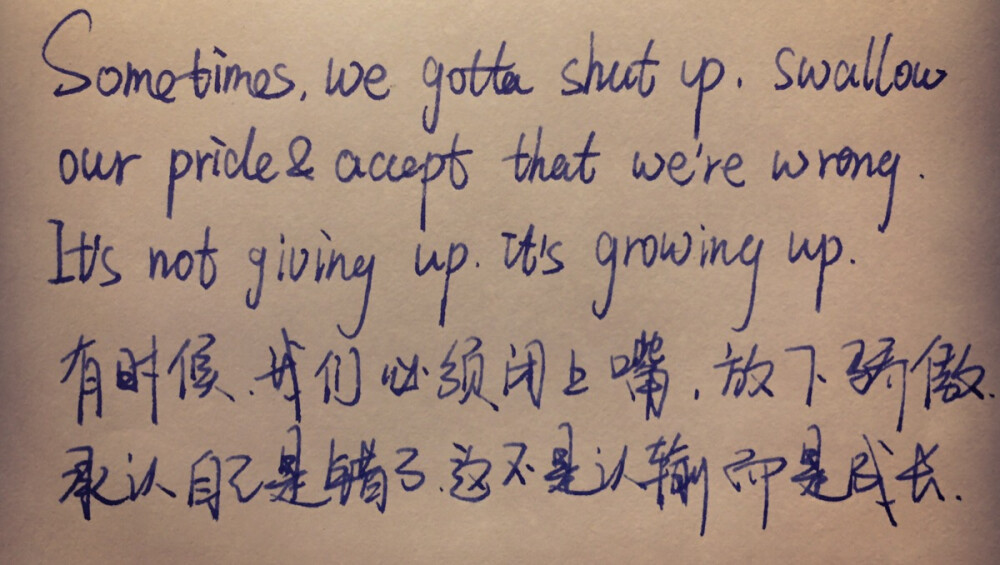 Sometimes, we gotta shut up. swallow
our pride & accept that we're wrong.
It's not giving up. It's growing up.
有时候,我们必须闭上嘴,放下骄傲.
承认自己是错了.这不是认输而是成长.